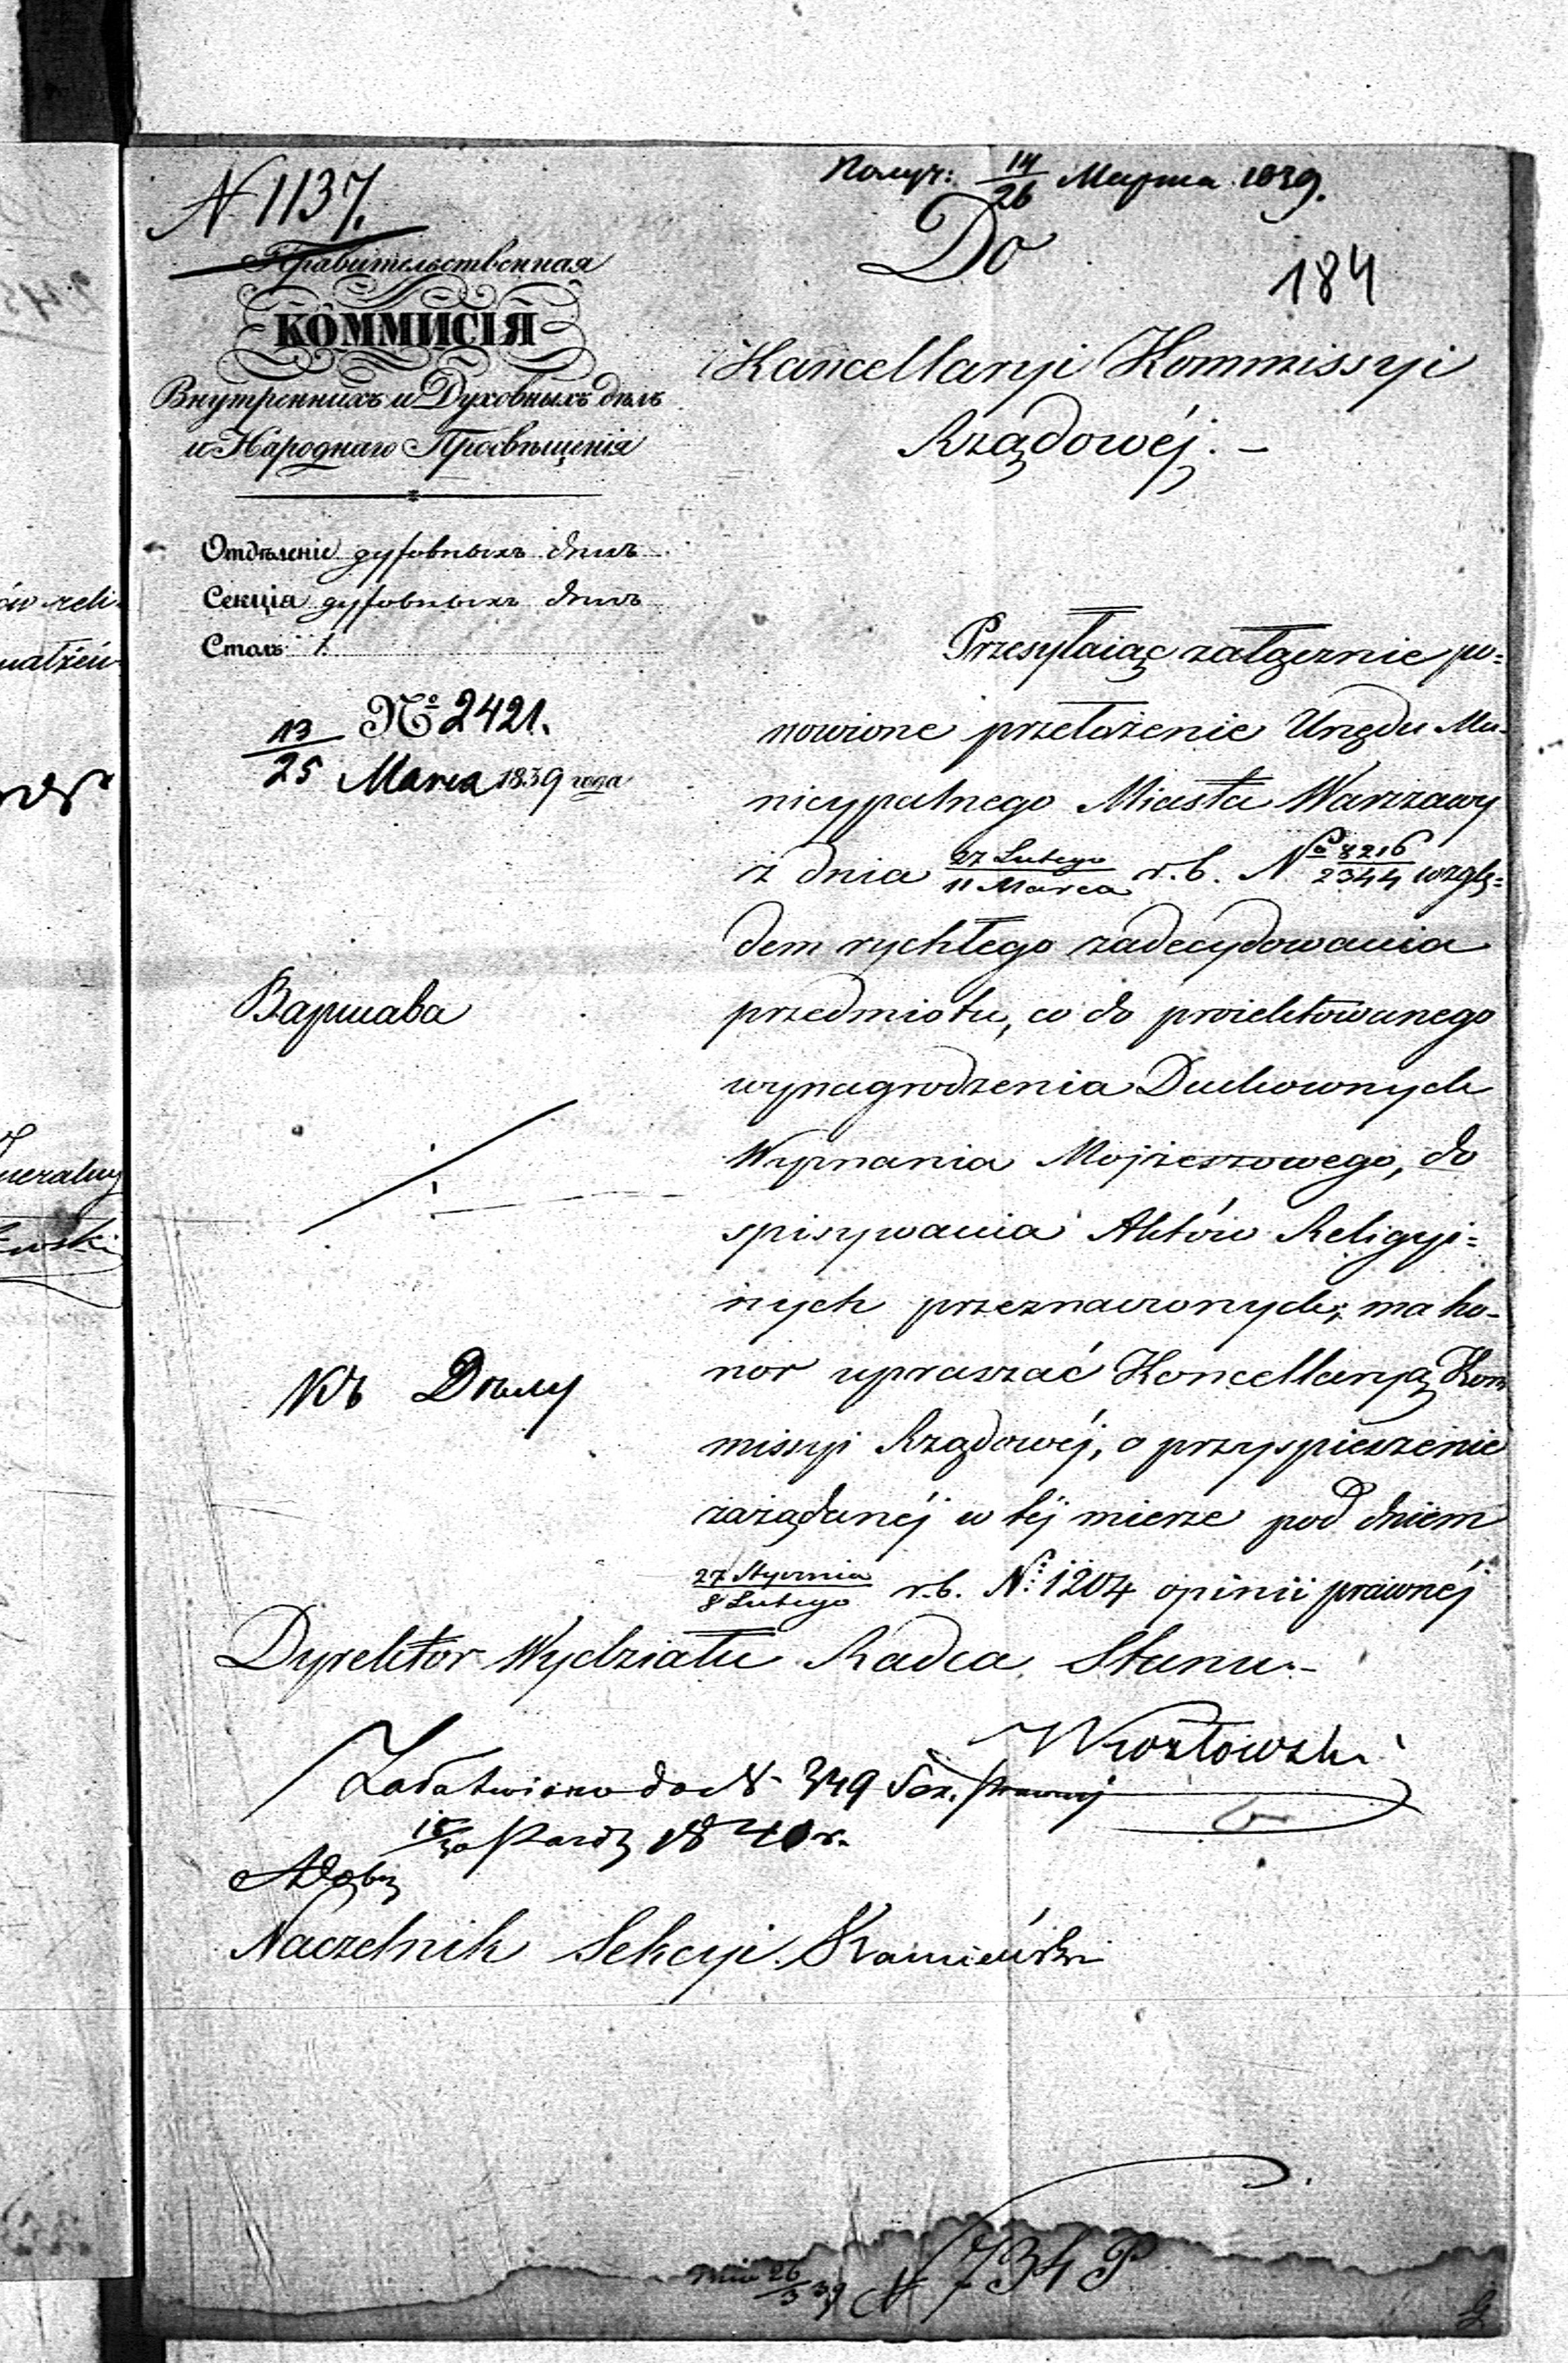 N 1137.
Получ: 14/26 Марта 1839.
184
Правительственная
КОММИСІЯ
Внутреннихъ и Духовныхъ дѣлъ
и Народнаго Просвѣщенія
Отдѣленіе духовныхъ дѣлъ
Секція духовныхъ дѣлъ
Столъ 1
№ 2421.
13/25 Marca 1839 года
Варшава
Къ Дѣлу
Do
Kancellaryi Kommissyi
Rządowéj. –
Przesyłaiąc załącznie po=
nowione przełożenie Urzędu Mu-
nicypalnego Miasta Warszawy
z dnia 27 Lutego/11 Marca r. b. No 8216/2344 wzglę=
dem rychłego zadecydowania
przedmiotu, co do proiektowanego
wynagrodzenia Duchownych
Wyznania Mojżeszowego, do
spisywania Aktów Religyi=
nych przeznaczonych; ma ho-
nor upraszać Kancellaryą Kom
missyi Rządowéj, o przyspieszenie
zażądanéj w téj mierze pod dniem
27 Stycznia/8 Lutego r. b. N: 1204 opinii prawnéj
Dyrektor Wydziału Radca Stanu. –
Załatwiono do N 349 Sek. prawnej
1840 r.
Naczelnik Sekcyi Kamieński
26/3 39 N 734 P